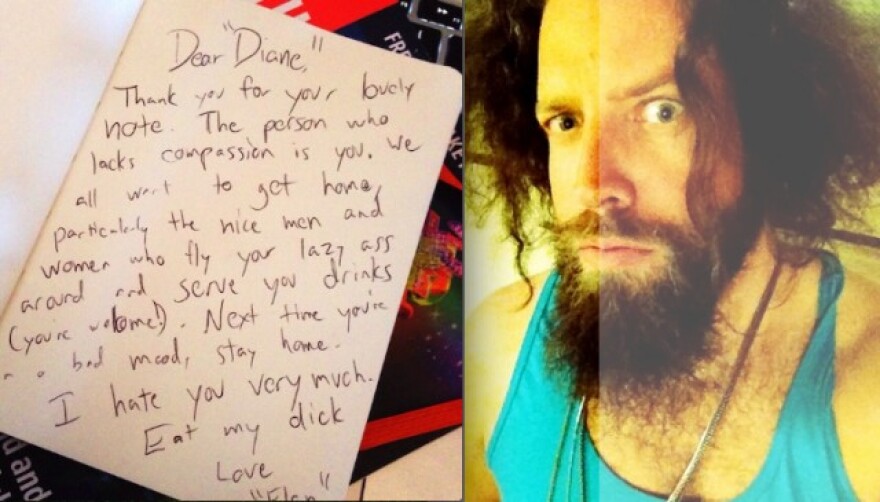 Dear "Diane,"
Thank you for your lovely
note. The person who
lacks compassion is you. We
all want to get home,
particularly the nice men and
women who fly your lazy ass
around and serve you drinks
(you're welcome!). Next time you're
in a bad mood, stay home.
I hate you very much.
Eat my dick
Love
"Elan"
FR
KE
d and